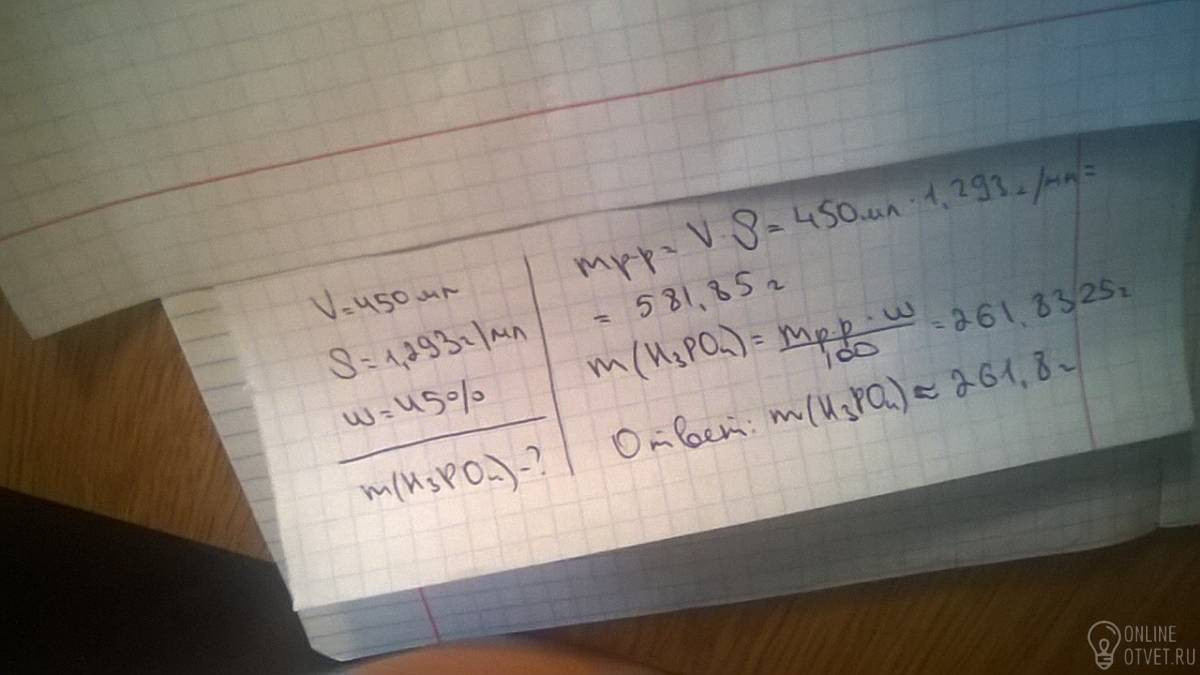 V=450мл
S=1,293г/мл
w=45%
m(H₃PO₄)-?
mр-р= V·S=450мл·1,293г/мл=
= 581,85г
m(H₃PO₄)= mр-р·w/100 =261,8325г
Ответ: m(H₃PO₄)≈261,8г
ONLINE
OTVET.RU